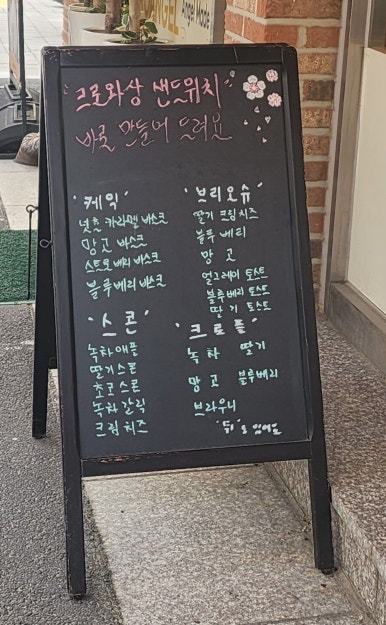 "크로와상 샌드위치"
바로 만들어 드려요
"케익"
넛츠 카라멜 바스크
망고 바스크
스트로베리 바스크
블루베리 바스크
"스콘"
녹차애플
딸기스콘
초코스콘
녹차 갈릭
크림치즈
"브리오슈"
딸기 크림치즈
블루베리
망고
얼그레이 토스트
블루베리 토스트
딸기 토스트
"크로플"
녹차 딸기
망고 블루베리
브라우니
"뒤"도 있어요
Angel